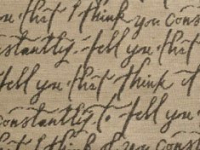 you that I think you cons
nstantly. tell you that
tell you that think of
constantly. to tell you
that I think of you const